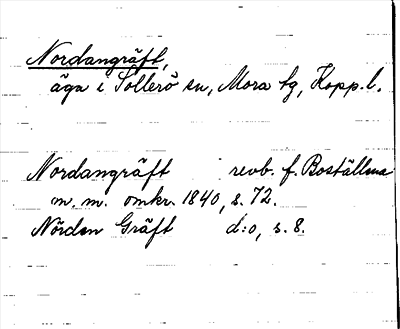 Nordangräft,
äga i Sollerö sn, Mora tg, Kopp. l.
Nordangräft revb. f. Boställena
m. m. omkr. 1840, s. 72.
Nördan Gräft d:o, s. 8.